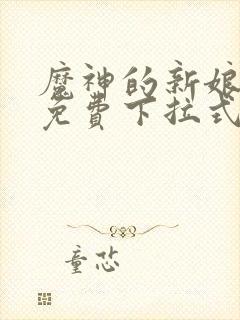 魔神的新娘
免費下拉式
童芯